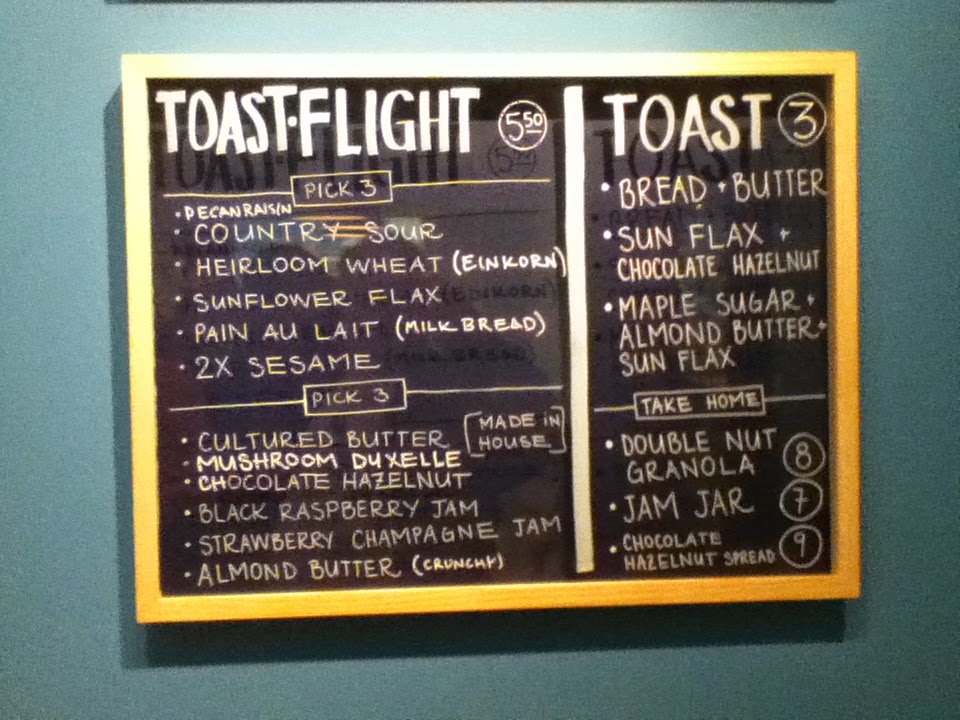 TOAST·FLIGHT 5.50
PICK 3
• PECAN RAISIN
• COUNTRY SOUR
• HEIRLOOM WHEAT (EINKORN)
• SUNFLOWER FLAX
• PAIN AU LAIT (MILK BREAD)
• 2X SESAME
PICK 3
• CULTURED BUTTER [MADE IN HOUSE]
• MUSHROOM DUXELLE
• CHOCOLATE HAZELNUT
• BLACK RASPBERRY JAM
• STRAWBERRY CHAMPAGNE JAM
• ALMOND BUTTER (CRUNCHY)
TOAST 3
• BREAD + BUTTER
• SUN FLAX +
CHOCOLATE HAZELNUT
• MAPLE SUGAR +
ALMOND BUTTER +
SUN FLAX
TAKE HOME
• DOUBLE NUT
GRANOLA 8
• JAM JAR 7
• CHOCOLATE
HAZELNUT SPREAD 9